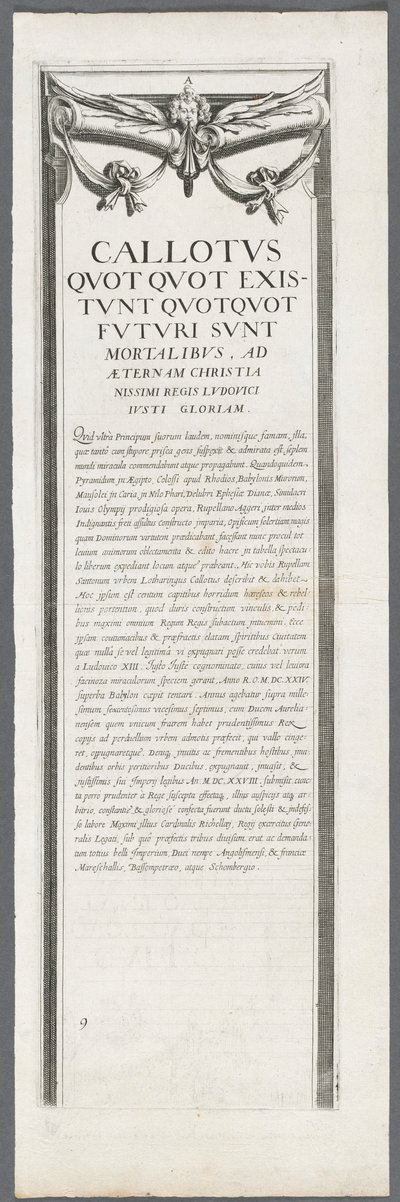 A
CALLOTVS
QVOT QVOT EXIS-
TVNT QVOTQVOT
FVTVRI SVNT
MORTALIBVS, AD
ÆTERNAM CHRISTIA
NISSIMI REGIS LVDOVICI
IVSTI GLORIAM.
Qvid vltra Principum suorum laudem, nominisque famam, illa,
quæ tantò cum stupore prisca gens suspexit & admirata est, septem
mundi miracula commendabunt atque propagabunt. Quandoquidem
Pyramidum jn Ægipto, Colossi apud Rhodios, Babylonis Murorum,
Mausolei jn Caria, jn Nilo Phari, Delubri Ephesiæ Dianæ, Simulacri
Iouis Olympij prodigiosa opera, Rupellano Aggeri, jnter medios
Indignantis freti assultus constructo jmparia, Opificum solertiam magis
quam Dominorum virtutem prædicabant, facessant nunc procul tot
leuium animorum oblectamenta & edito hacre jn tabella spectacu-
lo liberum expediant locum atque præbeant. Hic vobis Rupellam
Santonum vrbem Lotharingus Callotus describit & exhibet
Hoc ipsum est centum capitibus horridum hæreseos & rebel-
lionis portentum, quod duris constrictum vinculis, & pedi-
bus maximi omnium Regum Regis subactum jntuemini. Ecce
jpsam contumacibus & præfractis elatam spiritibus Ciuitatem
quæ nulla se vel legitima vi expugnari posse credebat verum
a Ludouico XIII. Iusto Iuste cognominato, cuius vel leuiora
facinora miraculorum speciem gerant, Anno R.O.M.DC.XXIV.
superba Babylon cœpit tentari. Annus agebatur supra mille-
simum sexcentesimus vicesimus septimus, cum Ducem Aurelia-
nensem quem vnicum fratrem habet prudentissimus Rex
copijs ad perduellum vrbem admotis præfecit, qui vallo cinge-
ret, oppugnaretque. Deniq jnuitis ac frementibus hostibus, jnui-
dentibus orbis peritioribus Ducibus, expugnauit, jnuasit, &
justissimis sui Jmperij legibus An. M.DC.XXVIII. submisit. cuncta
ta porro prudenter a Rege suscepta effectaq, illius auspicijs atq ar-
bitrio, constantiè & gloriosè confecta fuerunt ductu solesti & indefes-
so labore Maximi illius Cardinalis Richellæj, Regij exercitus Gene-
ralis Legati, sub quo præfectis tribus diuisum erat ac demanda-
tum totius belli Jmperium, Duci nempe Angolismensi, & franciæ
Mareschallis, Bassompetræo, atque Schombergio.
9